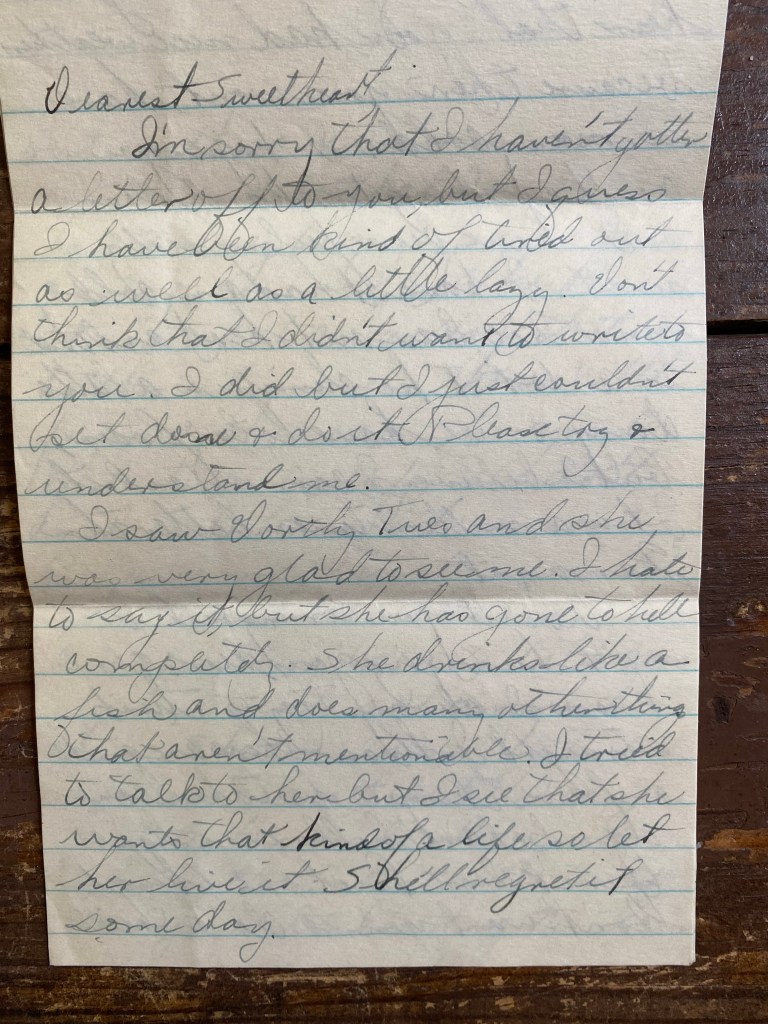 Dearest Sweetheart,
I'm sorry that I haven't gotten
a letter off to you, but I guess
I have been kind of tired out
as well as a little lazy. Don't
think that I didn't want to write to
you. I did but I just couldn't
set down & do it. Please try &
understand me.
I saw Dorthy Tues and she
was very glad to see me. I hate
to say it, but she has gone to hell
completdy. She drinks like a
fish and does many other thing
that aren't mentionable. I tried
to talk to here but I see that she
wants that kind of a life so let
her live it. She'll regret it
some day.